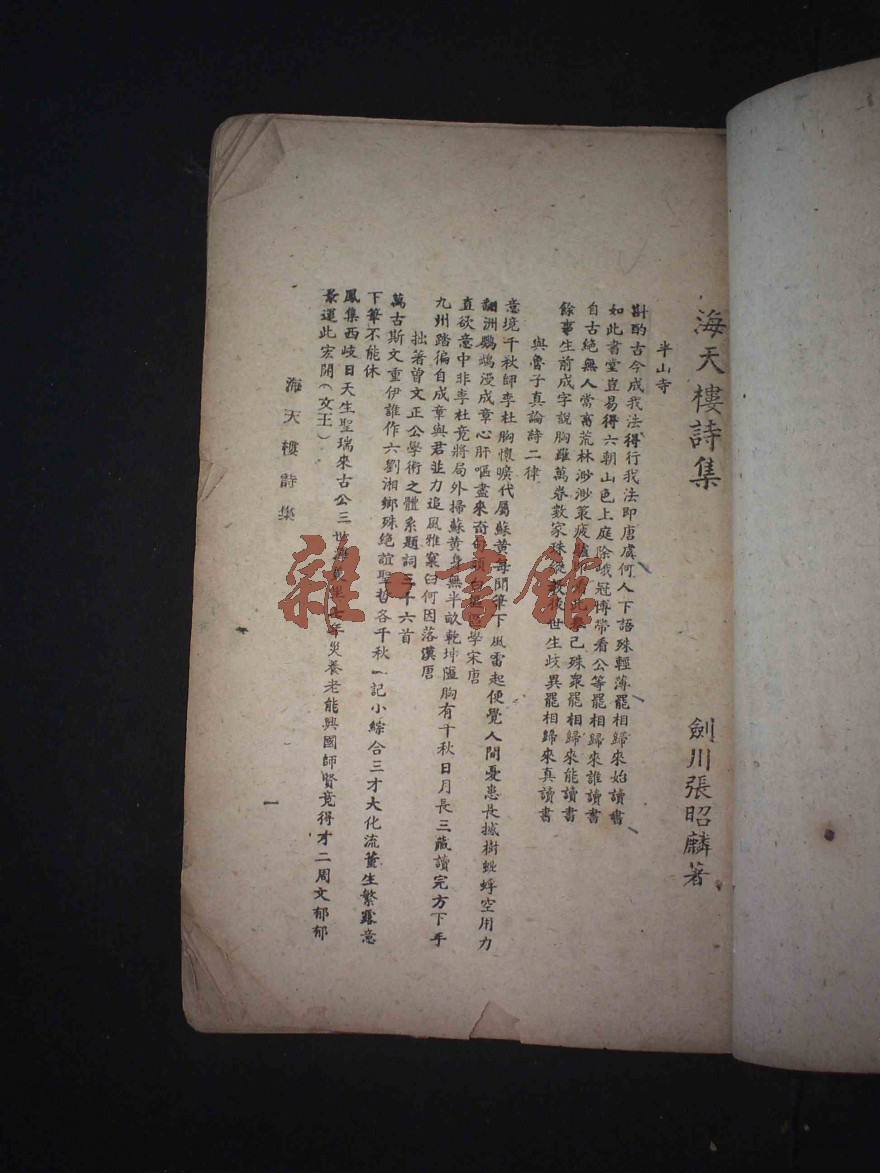 海天樓詩集
劍川張昭麟著
半山寺
斟酌古今成我法得行我法即唐虞何人下語殊輕薄罷相歸來始讀書
如此書堂豈易得六朝山色上庭除峨冠博帶看公等罷相歸來誰讀書
自古絕無人當富荒林渺渺策疲驢此己殊衆罷相歸來能讀書
餘事生前成字說胸羅萬卷數家殊後世生歧異罷相歸來真讀書
與魯子真論詩二律
意境千秋師李杜胸懷曠代屬蘇黃每聞筆下風雷起便覺人間憂患長撼樹蚍蜉空用力
翻洲鸚鵡漫成章心肝嘔盡來奇句學宋唐
直欲意中非李杜竟將局外掃蘇黃身無半畝乾坤隘胸有千秋日月長三藏讀完方下手
九州踏徧自成章與君並力追風雅窠臼何因落漢唐
拙著曾文正公學術之體系題詞三十六首
萬古斯文重伊誰作六劉湘鄉殊絕誼聖哲各千秋一記小綜合三才大化流董生繁露意
下筆不能休
鳳集西岐日天生聖瑞來古公三世年災養老能興國師賢竟得才二周文郁郁
景運此宏開（文王）
海天樓詩集
一
雜·書館